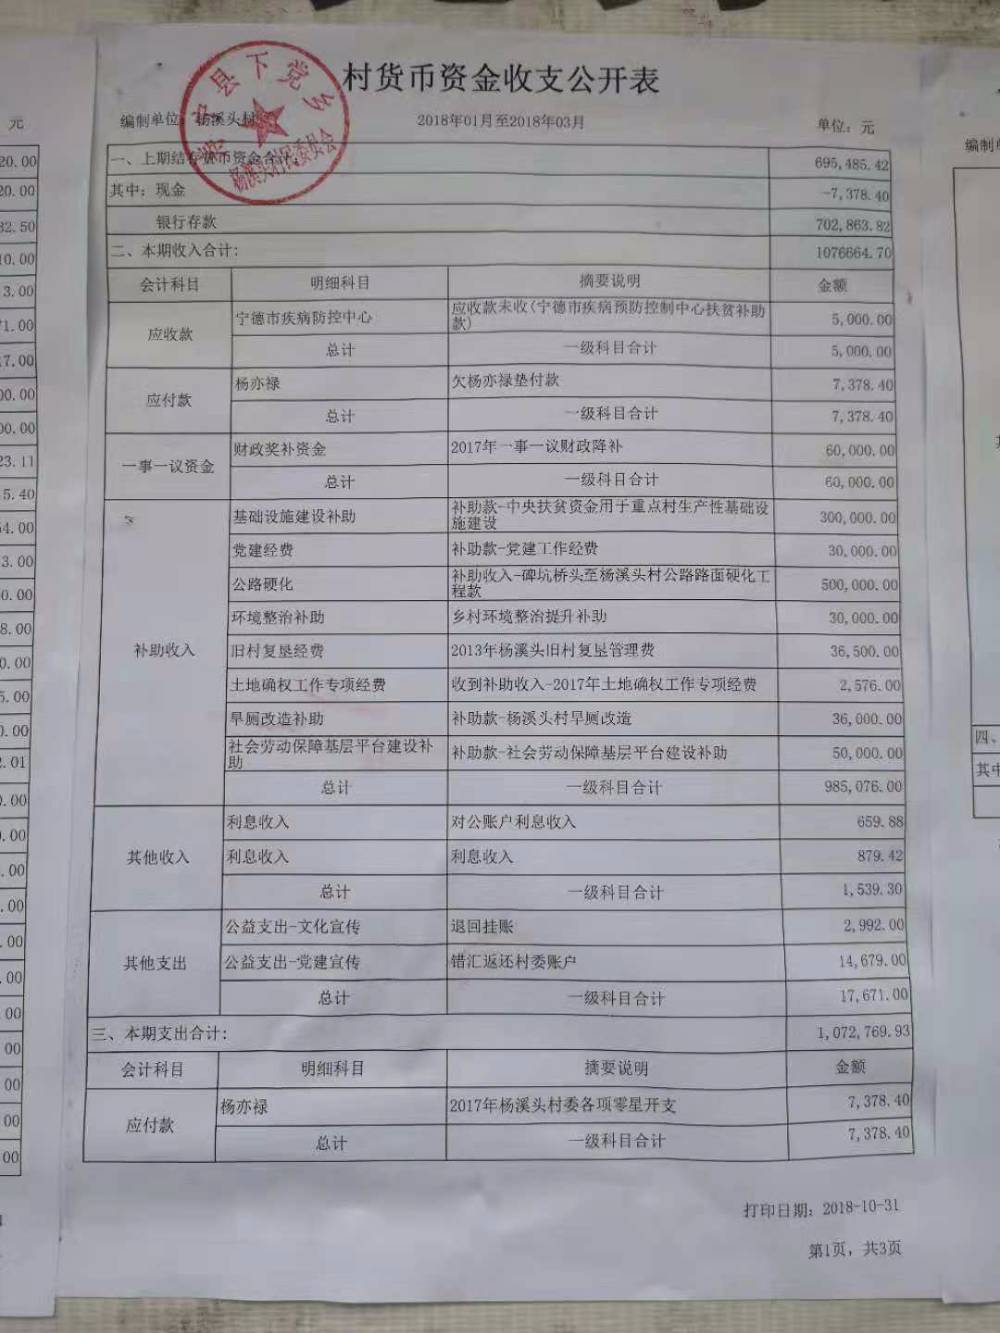 村货币资金收支公开表
编制单位：杨溪头村
2018年01月至2018年03月
单位：元
县下党乡
杨溪头村村民委员会
一、上期结存货币资金合计：
695,485.42
其中：现金
-7,378.40
银行存款
702,863.82
二、本期收入合计：
1076664.70
会计科目 明细科目 摘要说明 金额
应收款
宁德市疾病防控中心 应收款未收(宁德市疾病预防控制中心扶贫补助
款) 5,000.00
总计 一级科目合计 5,000.00
应付款
杨亦禄 欠杨亦禄垫付款 7,378.40
总计 一级科目合计 7,378.40
一事一议资金
财政奖补资金 2017年一事一议财政降补 60,000.00
总计 一级科目合计 60,000.00
补助收入
基础设施建设补助 补助款-中央扶贫资金用于重点村生产性基础设
施建设 300,000.00
党建经费 补助款-党建工作经费 30,000.00
公路硬化 补助收入-碑坑桥头至杨溪头村公路路面硬化工
程款 500,000.00
环境整治补助 乡村环境整治提升补助 30,000.00
旧村复垦经费 2013年杨溪头旧村复垦管理费 36,500.00
土地确权工作专项经费 收到补助收入-2017年土地确权工作专项经费 2,576.00
旱厕改造补助 补助款-杨溪头村旱厕改造 36,000.00
社会劳动保障基层平台建设补
助 补助款-社会劳动保障基层平台建设补助 50,000.00
总计 一级科目合计 985,076.00
其他收入
利息收入 对公账户利息收入 659.88
利息收入 利息收入 879.42
总计 一级科目合计 1,539.30
其他支出
公益支出-文化宣传 退回挂账 2,992.00
公益支出-党建宣传 错汇返还村委账户 14,679.00
总计 一级科目合计 17,671.00
三、本期支出合计：
1,072,769.93
会计科目 明细科目 摘要说明 金额
应付款
杨亦禄 2017年杨溪头村委各项零星开支 7,378.40
总计 一级科目合计 7,378.40
打印日期：2018-10-31
第1页，共3页
元
20.00
20.00
32.50
10.00
3.00
71.00
17.00
00.00
00.00
23.11
5.40
54.00
3.00
0.00
8.00
0.00
5.00
0.00
2.01
0.00
0.00
.00
.00
.00
.00
00
00
00
00
00
编制单
四、
其中